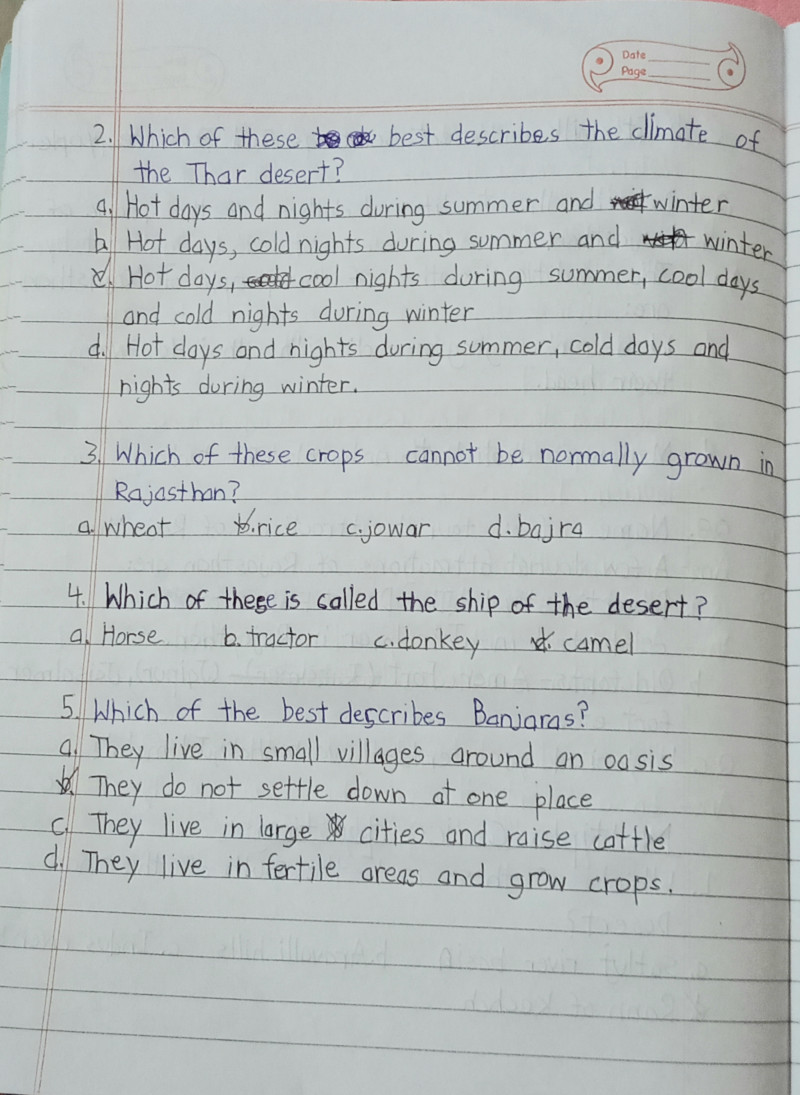 Date
Page
2. Which of these best describes the climate of
the Thar desert?
a. Hot days and nights during summer and winter
b. Hot days, cold nights during summer and winter
c. Hot days, cool nights during summer, cool days
and cold nights during winter
d. Hot days and nights during summer, cold days and
nights during winter.
3. Which of these crops cannot be normally grown in
Rajasthan?
a. wheat b. rice c. jowar d. bajra
4. Which of these is called the ship of the desert?
a. Horse b. tractor c. donkey d. camel
5. Which of the best describes Banjaras?
a. They live in small villages around an oasis
b. They do not settle down at one place
c. They live in large cities and raise cattle
d. They live in fertile areas and grow crops.